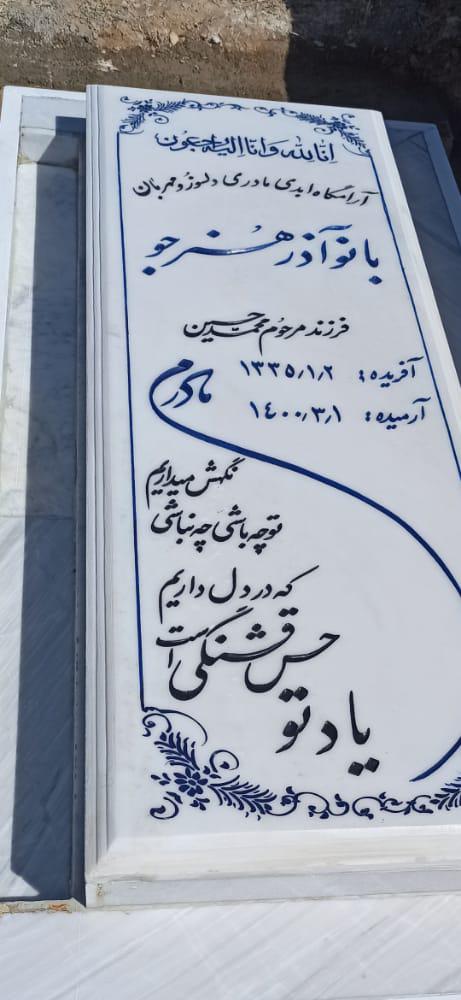 انا لله و انا الیه راجعون
آرامگاه ابدی مادری دلسوز و مهربان
بانو آذر هنرجو
فرزند مرحوم محمدحسین
آفریده: ۱۳۳۵/۱/۲
آرمیده: ۱۴۰۰/۳/۱
مادرم
یاد تو
حس قشنگی است
که در دل داریم
تو چه باشی چه نباشی
نگهش میداریم